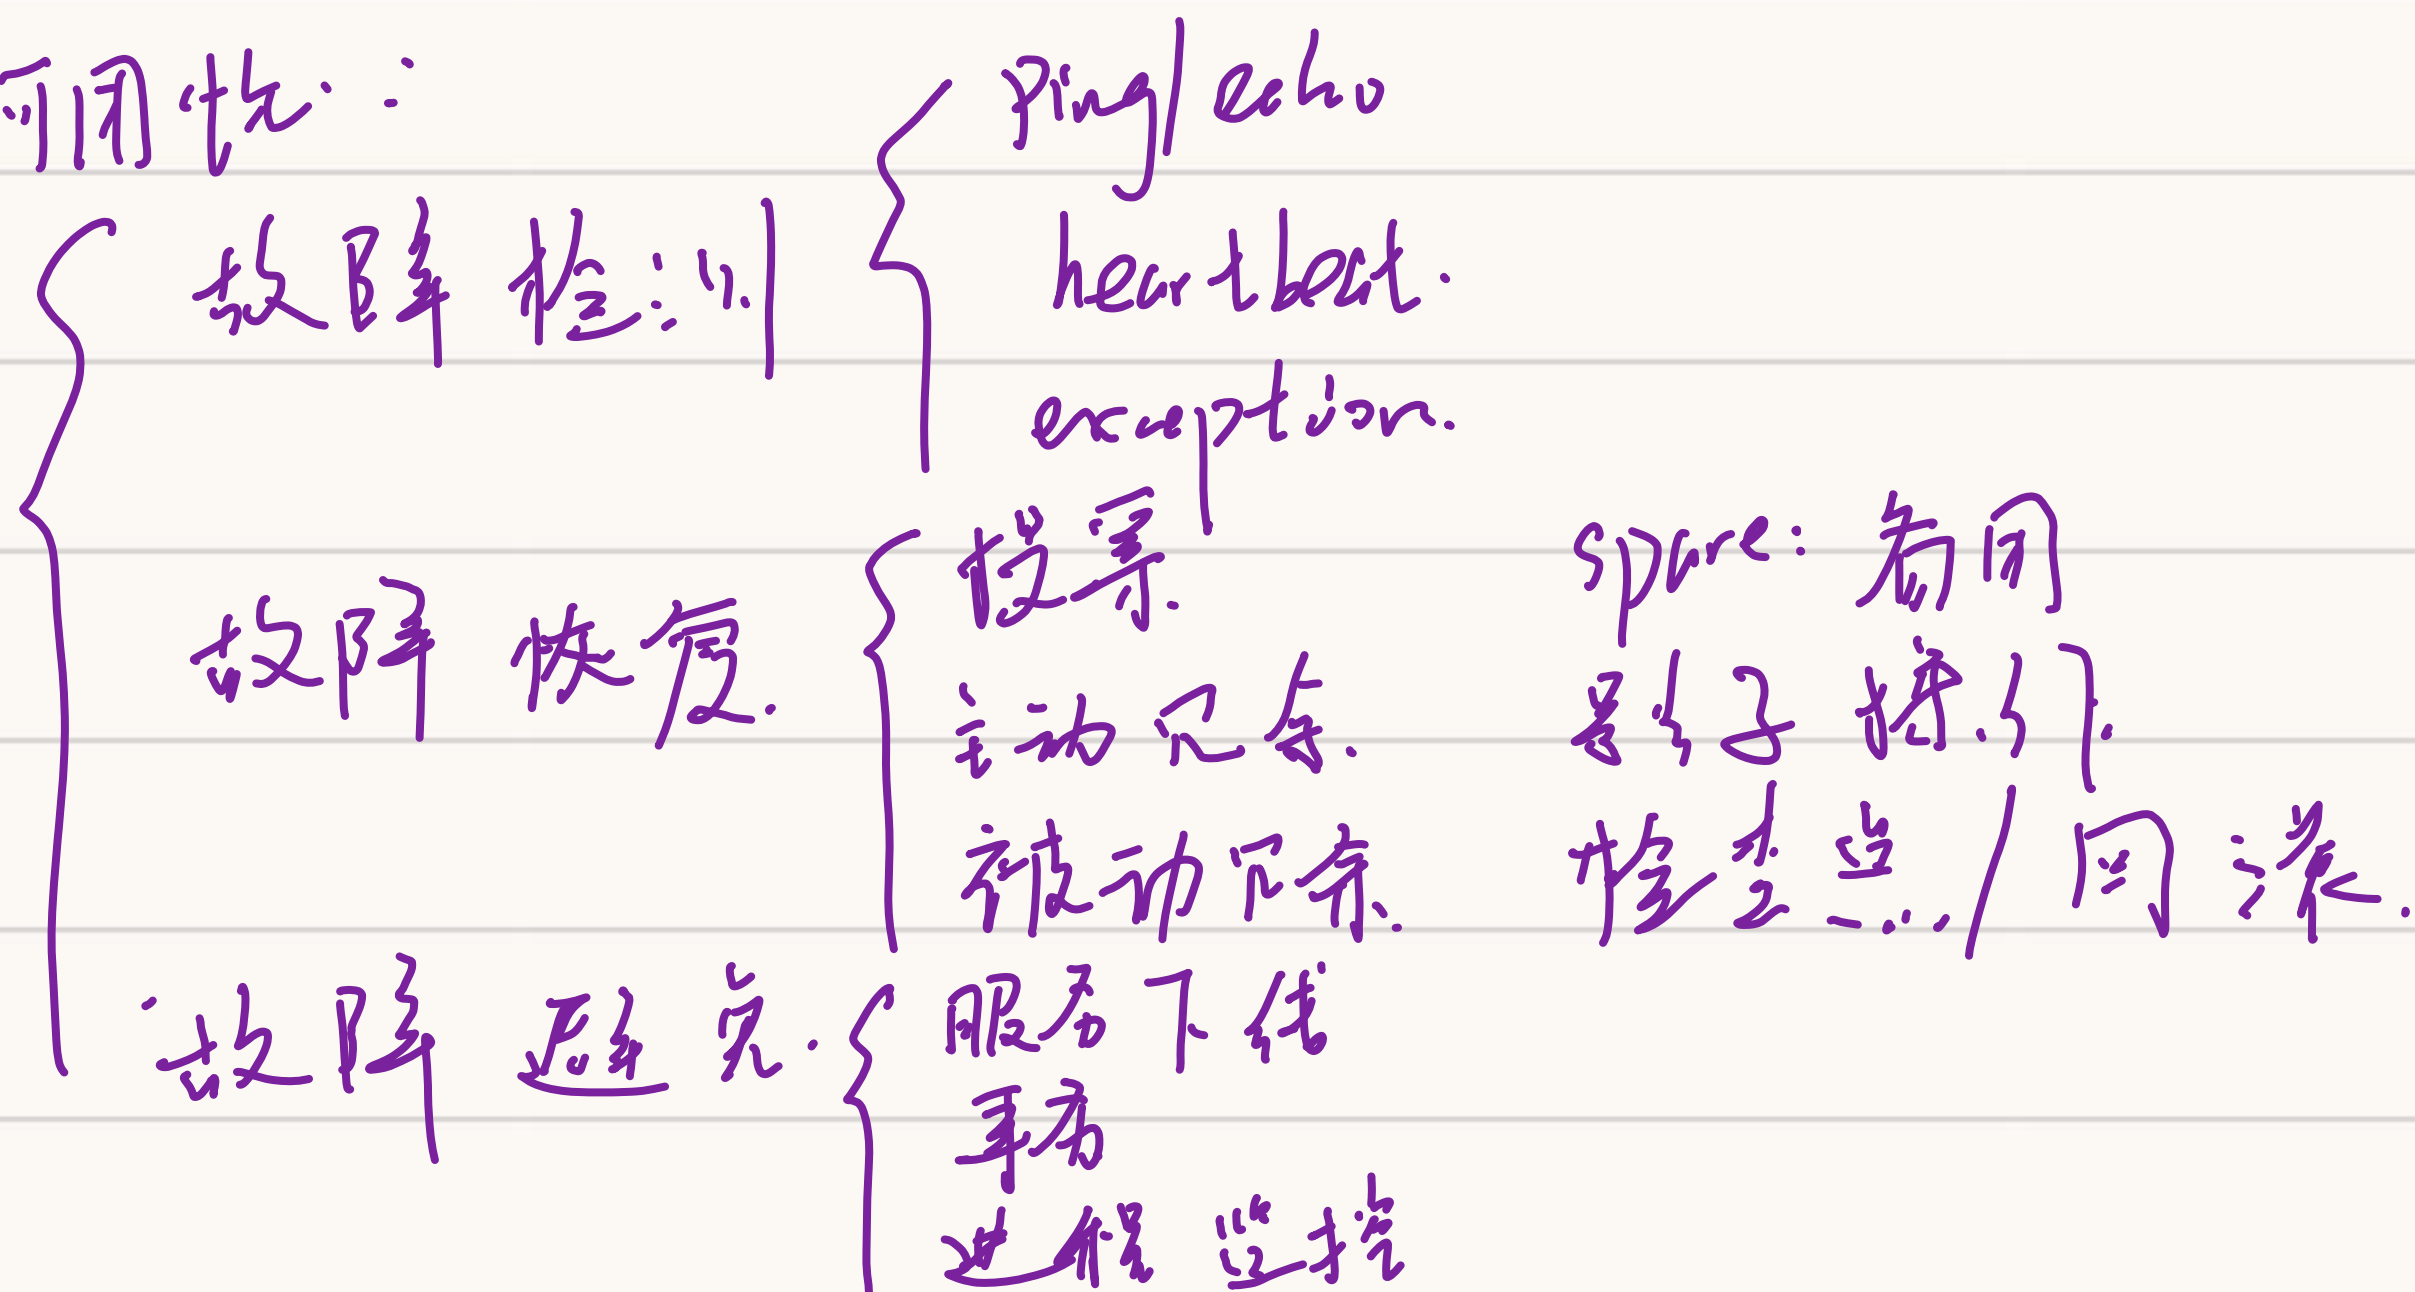 可用性:
故障检测
ping/echo
heartbeat.
exception.
故障恢复.
投票.
主动冗余.
被动冗余.
spare: 备用
影子操作.
检查点/回滚.
故障避免.
服务下线
事务
进程监控